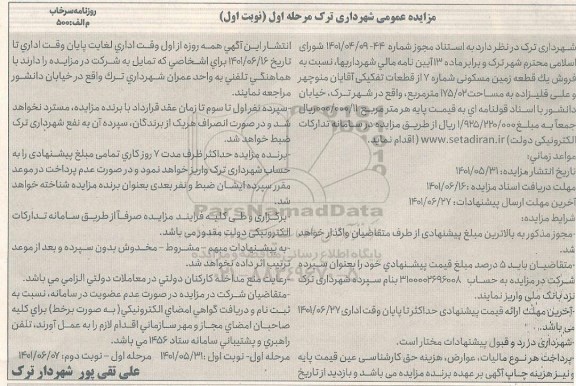 روزنامه سرخاب
م الف: ۵۰۰
مزایده عمومی شهرداری ترک مرحله اول (نوبت اول)
شهرداری ترک در نظر دارد به استناد مجوز شماره ۴۴-۱۴۰۱/۰۴/۰۹ شورای
اسلامی محترم شهر ترک و برابر ماده ۱۳ آیین نامه مالی شهرداریها، نسبت به
فروش یک قطعه زمین مسکونی شماره ۷ از قطعات تفکیکی آقایان منوچهر
و علی قلیزاده به مساحت ۱۷۵/۰۲ مترمربع، واقع در شهر ترک، خیابان
دانشور با اسناد قولنامه ای به قیمت پایه هر متر مربع ۱۱/۰۰۰/۰۰۰ ریال
جمعاً به مبلغ ۱/۹۲۵/۲۲۰/۰۰۰ ریال از طریق مزایده در سامانه تدارکات
الکترونیکی دولت) www.setadiran.ir) اقدام نماید.
مواعد زمانی:
تاریخ انتشار مزایده: ۱۴۰۱/۰۵/۳۱
مهلت دریافت اسناد مزایده : ۱۴۰۱/۰۶/۱۶
آخرین مهلت ارسال پیشنهادات : ۱۴۰۱/۰۶/۲۷
شرایط مزایده:
-مجوز مذکور به بالاترین مبلغ پیشنهادی از طرف متقاضیان واگذار خواهد
شد.
-متقاضیان باید ۵ درصد مبلغ قیمت پیشنهادی خود را بعنوان سپرده
شرکت در مزایده به حساب ۳۱۰۰۰۰۲۶۹۶۰۰۸ بنام سپرده شهرداری ترک
نزد بانک ملی واریز نمایند.
-آخرین مهلت ارائه قیمت پیشنهادی حداکثر تا پایان وقت اداری ۱۴۰۱/۰۶/۲۷
می باشد.
-شهرداری در رد و قبول پیشنهادات مختار است.
-پرداخت هر نوع مالیات، عوارض، هزینه حق کارشناسی عین قیمت پایه
و نیز هزینه چاپ آگهی بر عهده برنده مزایده می باشد و بازدید از تاریخ
انتشار این آگهی همه روزه از اول وقت اداری لغایت پایان وقت اداری تا
تاریخ ۱۴۰۱/۰۶/۱۶ برای اشخاصی که تمایل به شرکت در مزایده را دارند با
هماهنگی تلفنی به واحد عمران شهرداری ترک واقع در خیابان دانشور
مراجعه نمایند.
-سپرده نفر اول تا سوم تا زمان عقد قرارداد با برنده مزایده، مسترد نخواهد
شد و در صورت انصراف هریک از برندگان، سپرده آن به نفع شهرداری ترک
ضبط خواهد شد.
-برنده مزایده حداکثر ظرف مدت ۷ روز کاری تمامی مبلغ پیشنهادی را به
حساب شهرداری ترک واریز خواهد نمود و در صورت عدم پرداخت در موعد
مقرر سپرده ایشان ضبط و نفر بعدی بعنوان برنده مزایده شناخته خواهد
شد.
-برگزاری و طی کلیه فرایند مزایده صرفاً از طریق سامانه تدارکات
الکترونیکی دولت مقدور می باشد.
-به پیشنهادات مبهم – مشروط – مخدوش بدون سپرده و بعد از موعد
ترتیب اثر داده نخواهد شد.
-رعایت منع مداخله کارکنان دولتی در معاملات دولتی الزامی می باشد.
-متقاضیان شرکت در مزایده در صورت عدم عضویت در سامانه، نسبت به
ثبت نام و دریافت گواهی امضای الکترونیکی( به صورت برخط) برای کلیه
صاحبان امضای مجاز و مهر سازمانی اقدام لازم را به عمل آورند، تلفن
راهبری و پشتیبانی سامانه ستاد ۱۴۵۶ می باشد.
مرحله اول- نوبت اول :۱۴۰۱/۰۵/۳۱ مرحله اول - نوبت دوم: ۱۴۰۱/۰۶/۰۷
علی نقی پور شهردار ترک
ParsNamadData